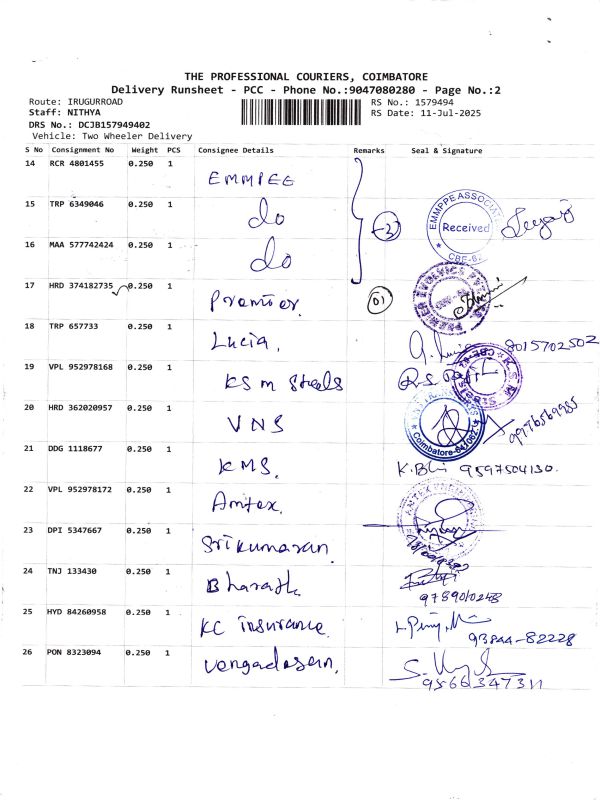 THE PROFESSIONAL COURIERS, COIMBATORE
Delivery Runsheet - PCC - Phone No.:9047080280 - Page No.:2
Route: IRUGURROAD RS No.: 1579494
Staff: NITHYA RS Date: 11-Jul-2025
DRS No.: DCJB157949402
Vehicle: Two Wheeler Delivery
S No Consignment No Weight PCS Consignee Details Remarks Seal & Signature
14 RCR 4801455 0.250 1 EMMPEE
15 TRP 6349046 0.250 1 do EMMPPE ASSOCIAT Received CBE-6
16 MAA 577742424 0.250 1 do
17 HRD 374182735 0.250 1 Premier 01
18 TRP 657733 0.250 1 Lucia, 8015702502
19 VPL 952978168 0.250 1 KSM Steels K.S.M.
20 HRD 362020957 0.250 1 VNS Coimbatore-641062
21 DDG 1118677 0.250 1 KMS. 9597504130.
22 VPL 952978172 0.250 1 Amtex.
23 DPI 5347667 0.250 1 Srikumaran
24 TNJ 133430 0.250 1 Bharath
25 HYD 84260958 0.250 1 KC insurance 93844-82228
26 PON 8323094 0.250 1 Vengadasan. 9566347311